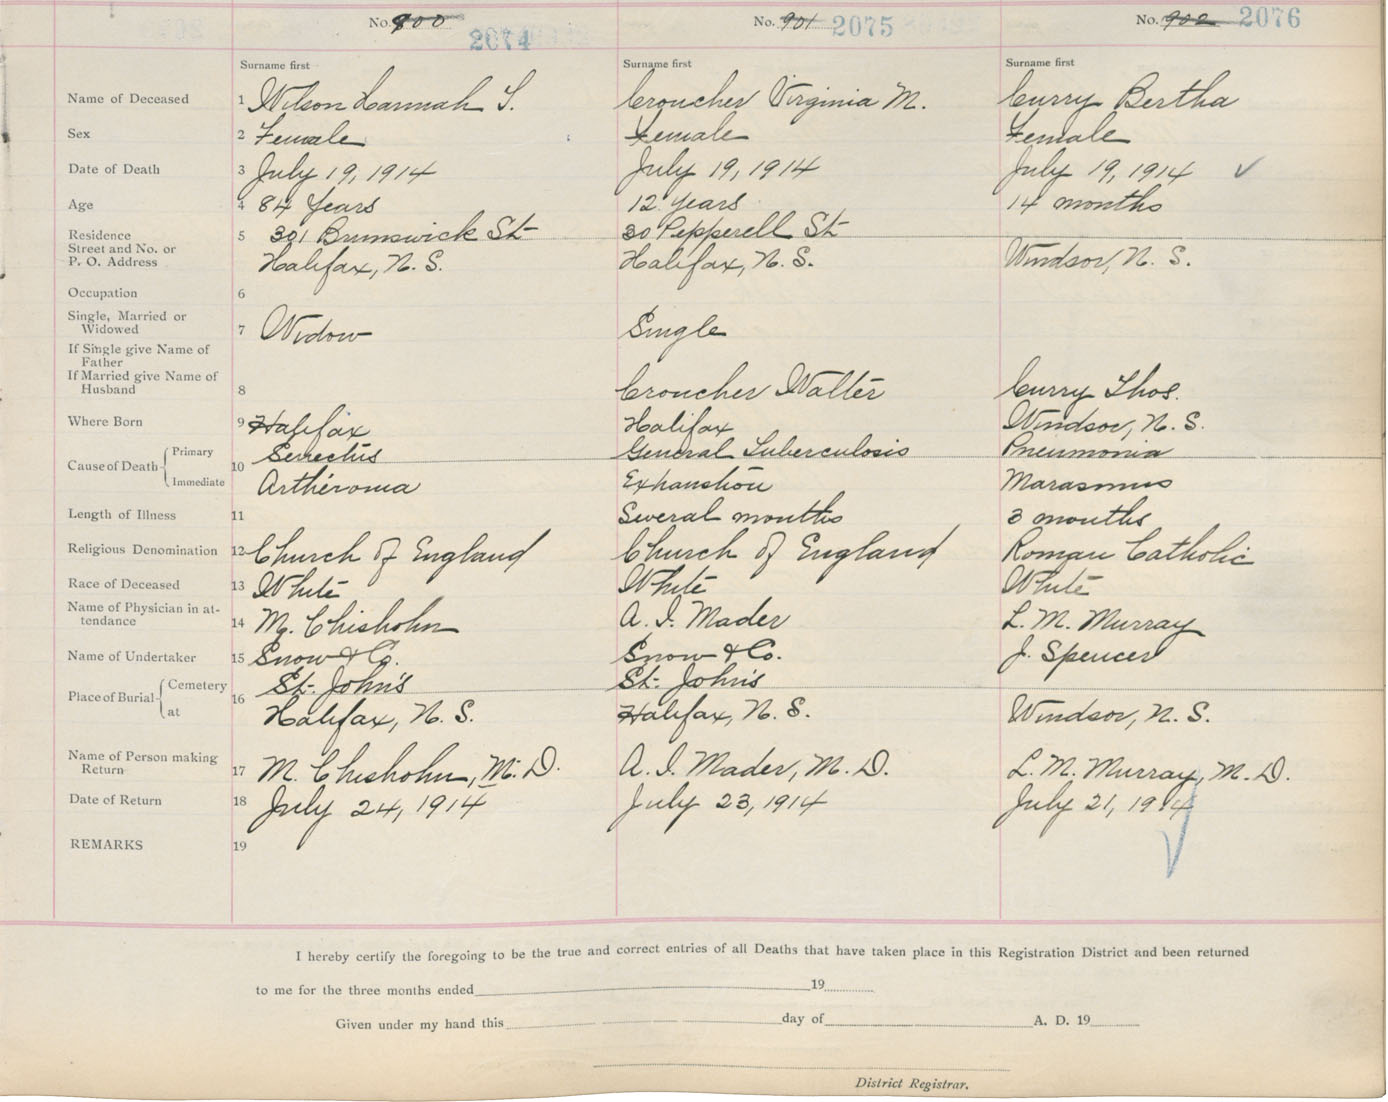 No. 900 2074 No. 901 2075 No. 902 2076
Surname first Surname first Surname first
Name of Deceased 1 Wilson Hannah S. Croucher Virginia M. Curry Bertha
Sex 2 Female Female Female
Date of Death 3 July 19, 1914 July 19, 1914 July 19, 1914 ✓
Age 4 84 Years 12 Years 14 months
Residence 5 301 Brunswick St 30 Pepperell St
Street and No. or
P. O. Address Halifax, N. S. Halifax, N. S. Windsor, N. S.
Occupation 6
Single, Married or
Widowed 7 Widow Single
If Single give Name of
Father
If Married give Name of
Husband 8 Croucher Walter Curry Thos.
Where Born 9 Halifax Halifax Windsor, N. S.
Cause of Death Primary 10 Senectus General Tuberculosis Pneumonia
Immediate Artheroma Exhaustion Marasmus
Length of Illness 11 Several months 3 months
Religious Denomination 12 Church of England Church of England Roman Catholic
Race of Deceased 13 White White White
Name of Physician in at-
tendance 14 M. Chisholm A. I. Mader L. M. Murray
Name of Undertaker 15 Snow & Co. Snow & Co. J. Spencer
Place of Burial Cemetery 16 St. John's St. John's
at Halifax, N. S. Halifax, N. S. Windsor, N. S.
Name of Person making
Return 17 M. Chisholm, M. D. A. I. Mader, M. D. L. M. Murray, M. D.
Date of Return 18 July 24, 1914 July 23, 1914 July 21, 1914
REMARKS 19
I hereby certify the foregoing to be the true and correct entries of all Deaths that have taken place in this Registration District and been returned
to me for the three months ended 19
Given under my hand this day of A. D. 19
District Registrar.